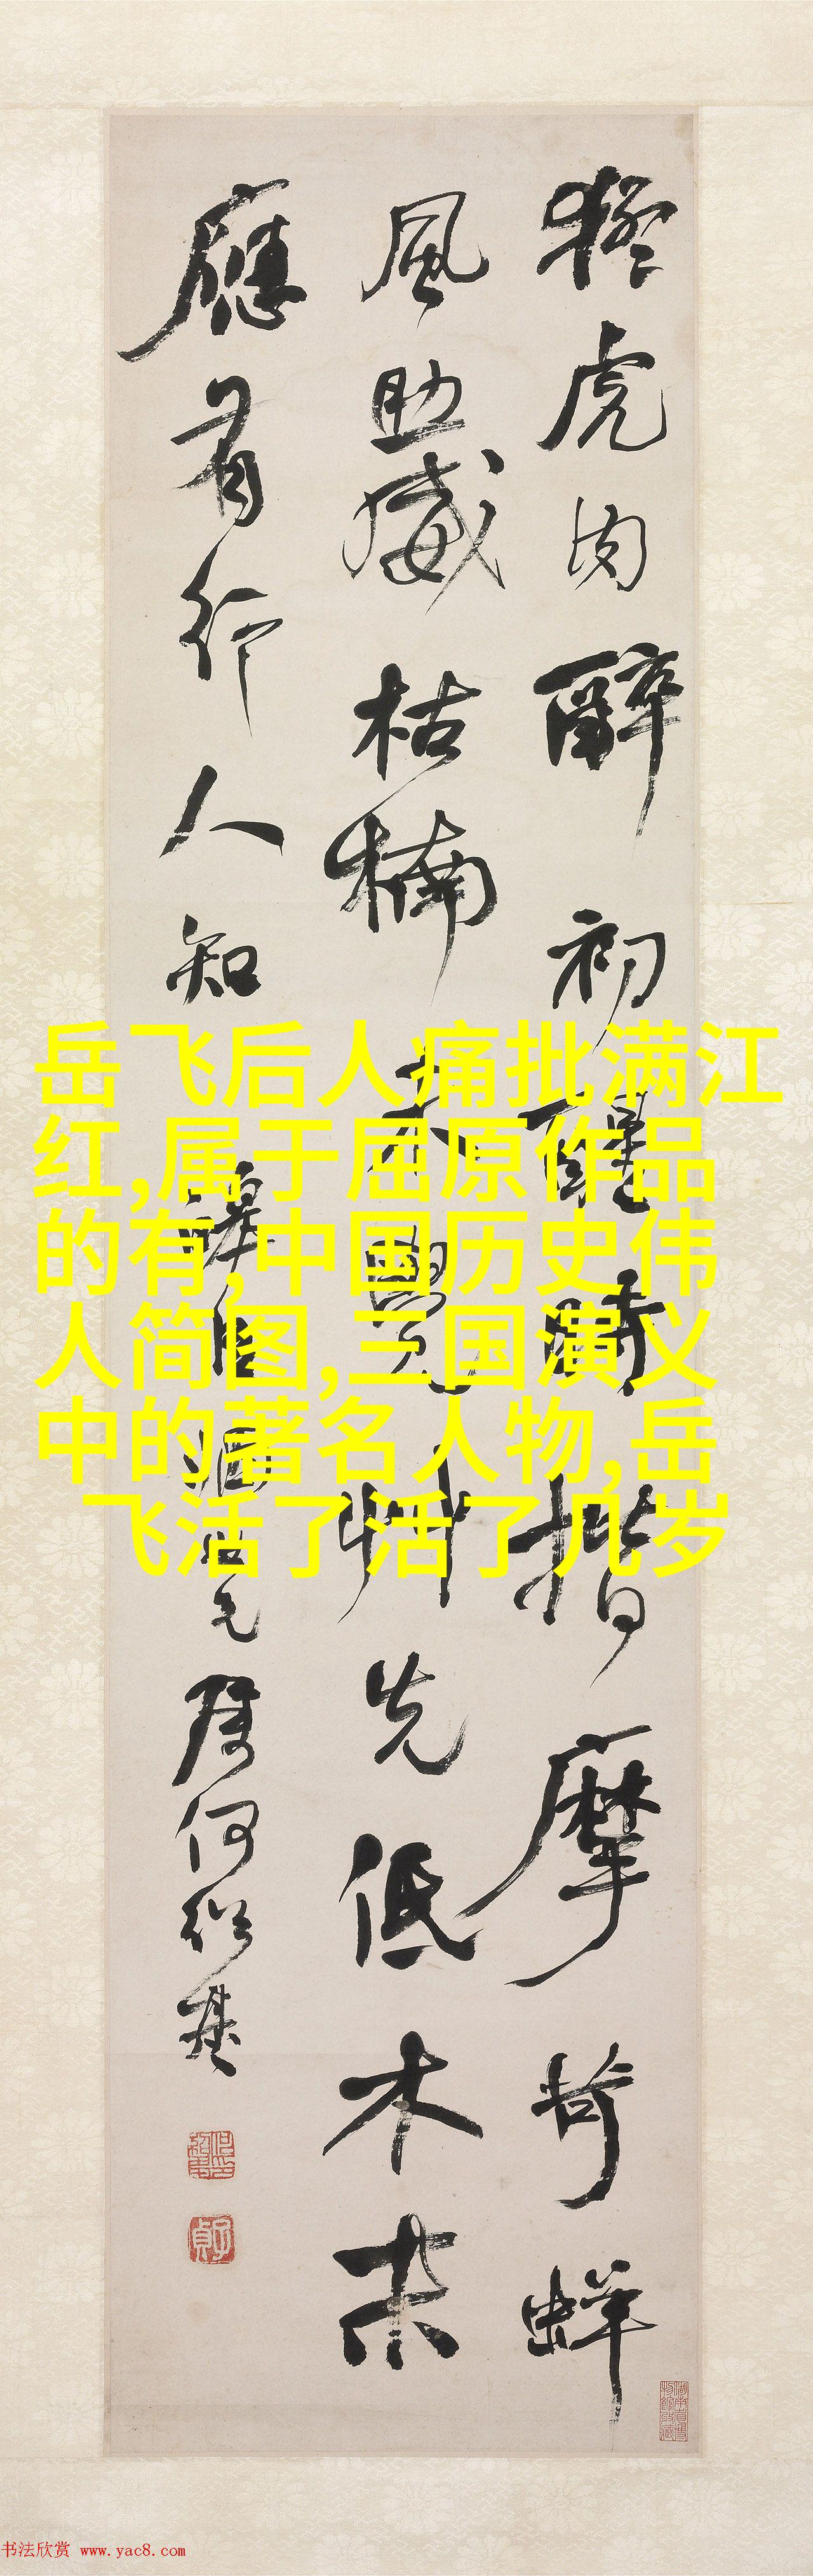 猛虎肉醉初醒時揩摩苛蛘
風助威枯楠未覺艸先低木末
應有行人知
何紹基
岳飞后人痛批满江
红,属于屈原作品
的有,中国历史伟
人简图,三国演义
中的著名人物,岳
飞活了活了几岁
书法欣赏 www.yac8.com